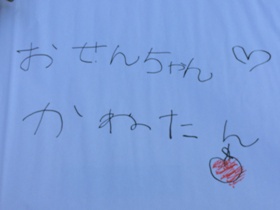 おせんちゃん♡
かねたん